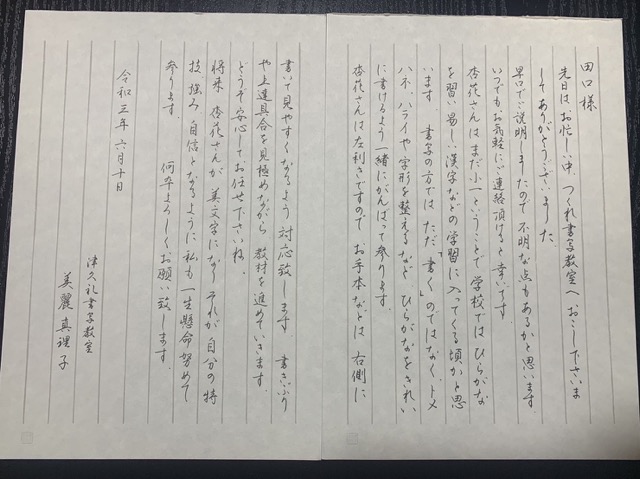 田口様
先日は、お忙しい中、つくれ書写教室へおこし下さいま
してありがとうございました
早口でご説明しましたので不明な点もあるかと思います
いつでもお気軽にご連絡頂けると幸いです。
杏花さんはまだ小一ということで学校ではひらがな
を習い易しい漢字などの学習に入ってくる頃かと思
います。書写の方ではただ「書く」のではなく、トメ
ハネ、ハライや字形を整えるなど ひらがなをきれい
に書けるよう一緒にがんばって参ります。
杏花さんは左利きですので お手本などは 右側に
書いて見やすくなるよう 対応致します 書きぶり
や上達具合を見極めながら 教材を進めていきます。
どうぞ安心してお任せ下さいね。
将来 杏花さんが 美文字になり それが自分の特
技、強み 自信となるように私も一生懸命努めて
参ります。 何卒よろしくお願い致します。
令和三年 六月十日
津久礼書写教室
美麗真理子